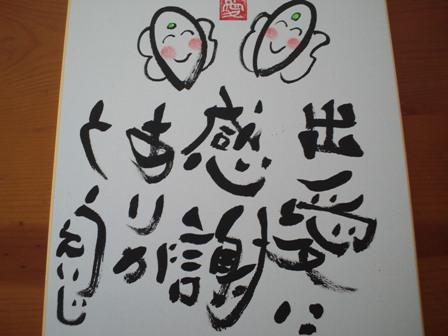 愛
出愛に
感謝
ありが
とう
えいじ